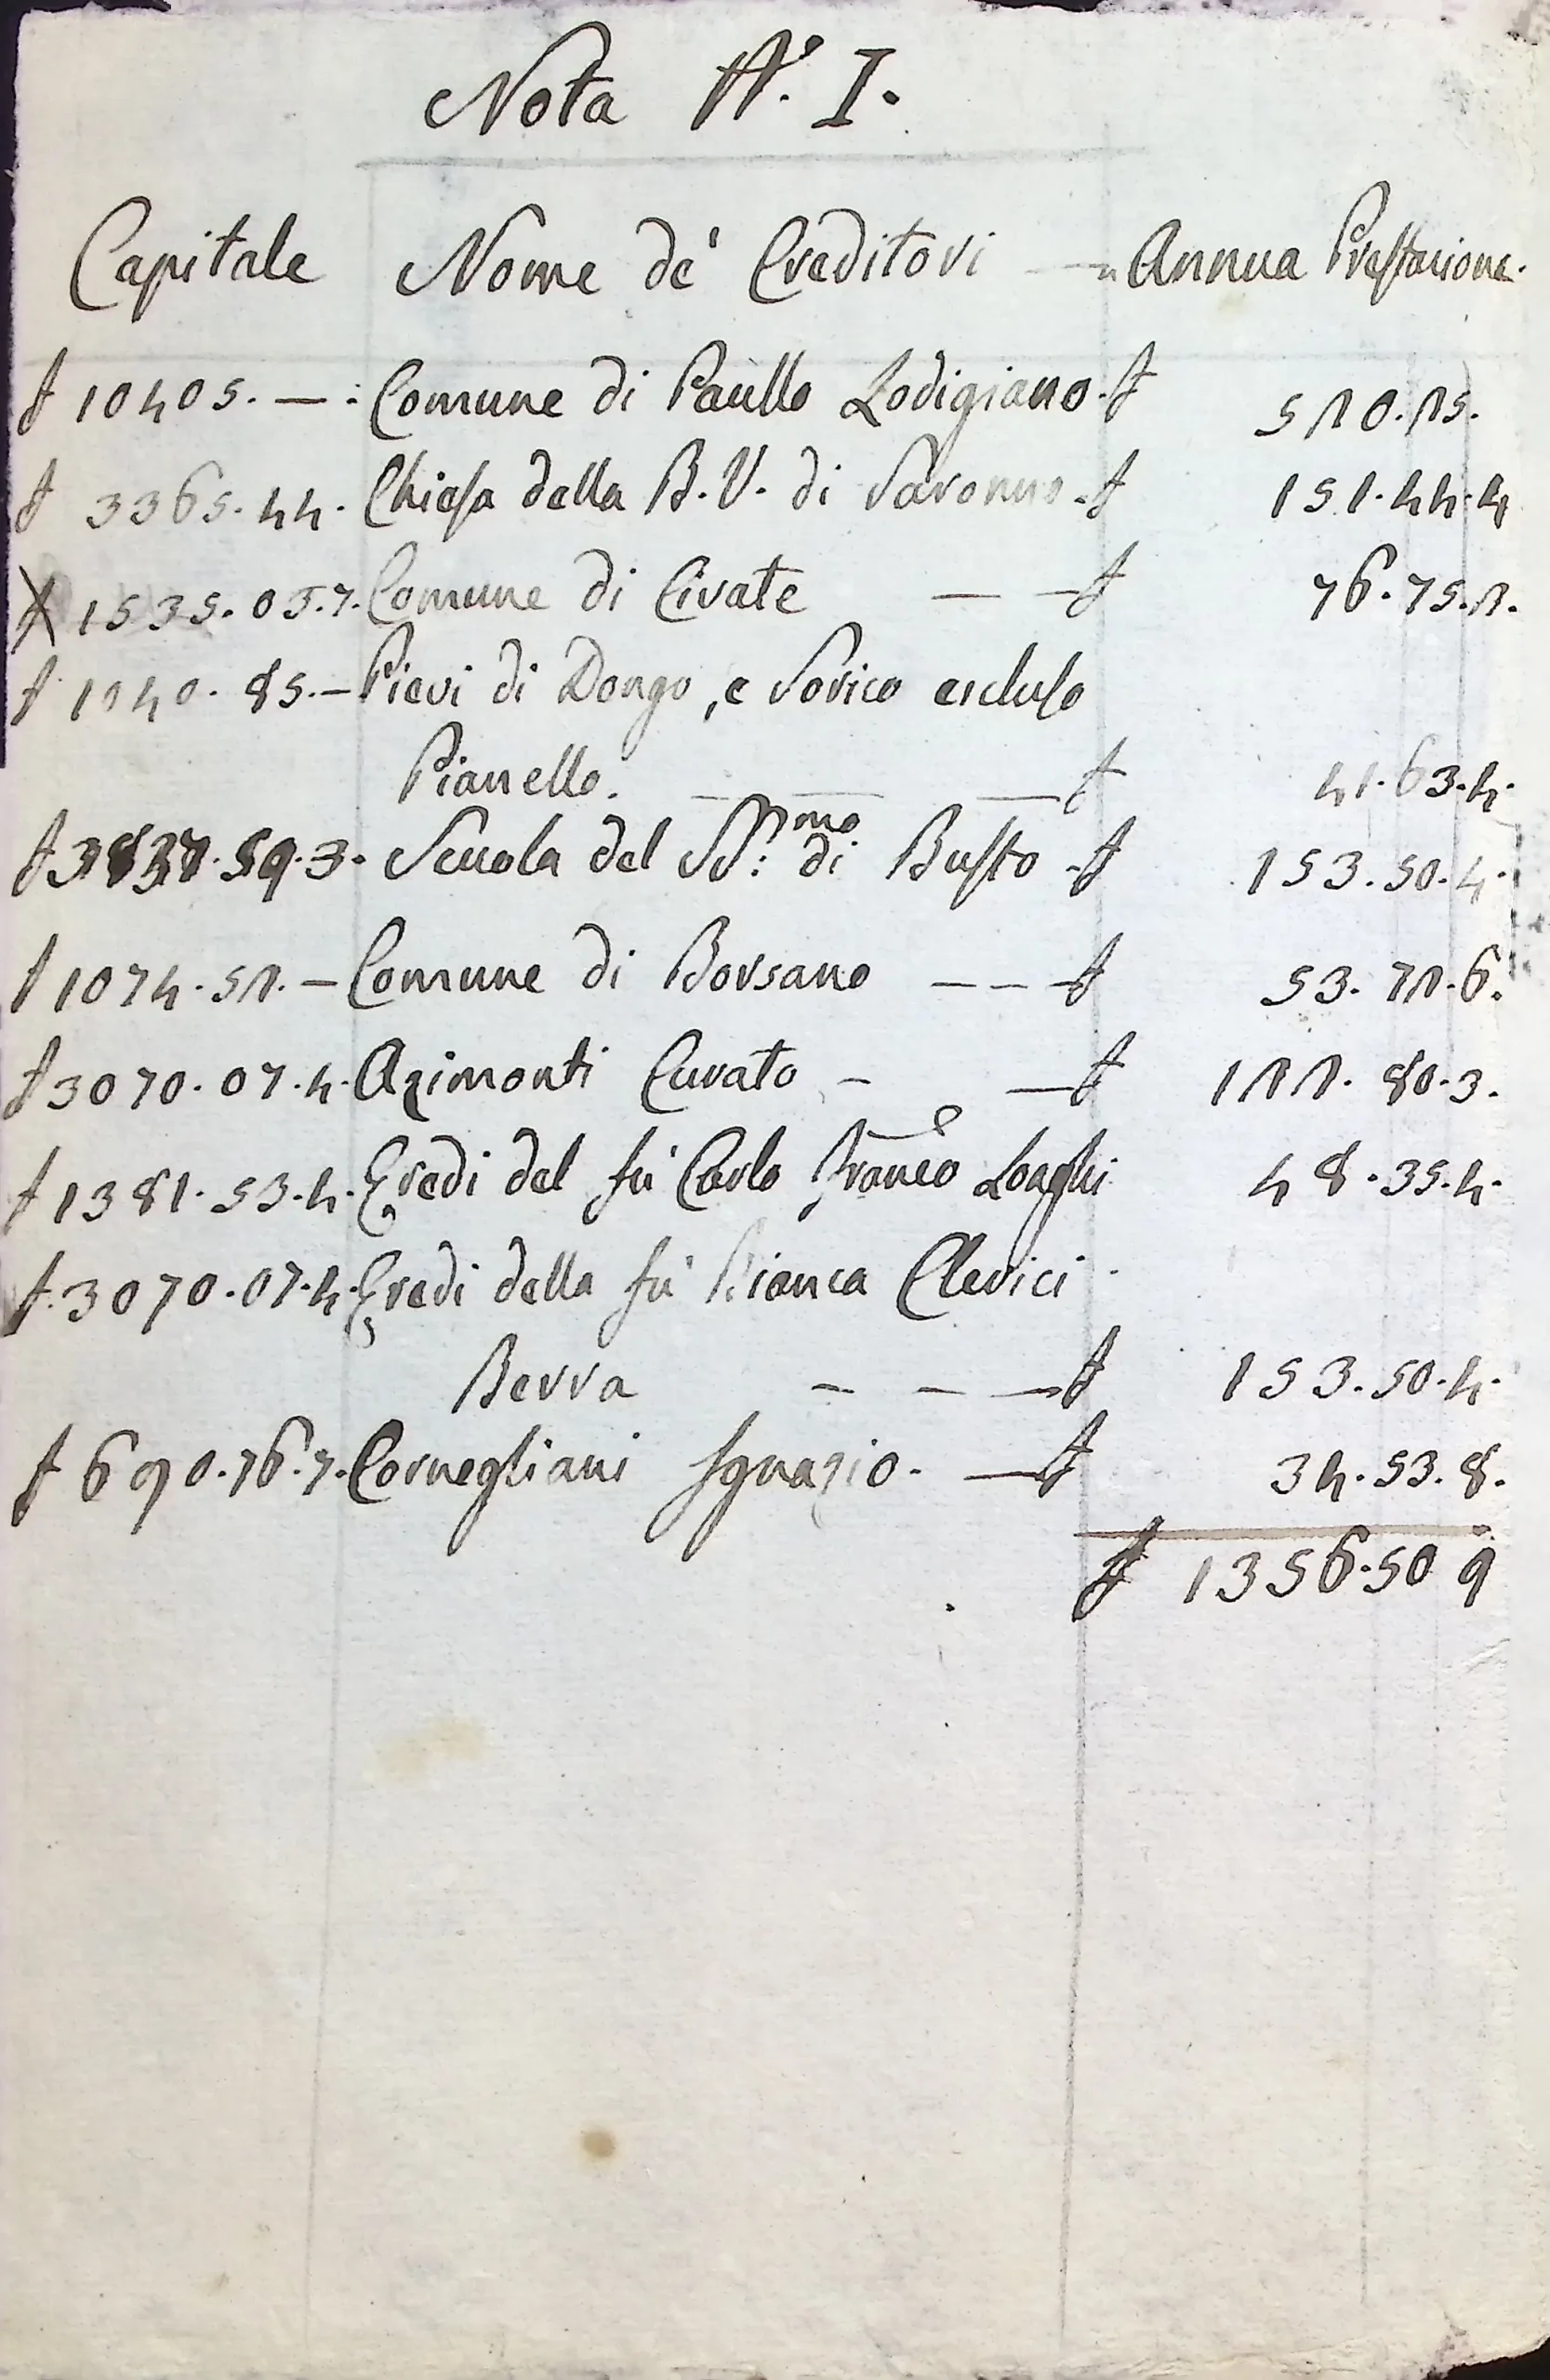 Nota N.° I.
Capitale Nome de' Creditori — Annua Prestazione.
£ 10405. — : Comune di Paullo Lodigiano. £ 520.25.
£ 3365.44. Chiesa della B. V. di Saronno. £ 151.44.4
£ 1535.03.7. Comune di Civate — — £ 76.75.2.
£ 1040.85. — Pievi di Dongo, e Sorico escluso
Pianello. — — — £ 41.63.4.
£ 3837.59.3. Scuola del SS:mo di Busto £ 153.50.4.
£ 1074.52. — Comune di Borsano — — — £ 53.72.6.
£ 3070.07.4. Azimonti Curato — — £ 122.80.3.
£ 1381.53.4. Eredi del fù Carlo Franco Longhi 48.35.4.
£ 3070.07.4. Eredi della fù Bianca Clerici
Berra — — — £ 153.50.4.
£ 690.76.7. Cornegliani Ignazio. — £ 34.53.8.
£ 1356.50 9